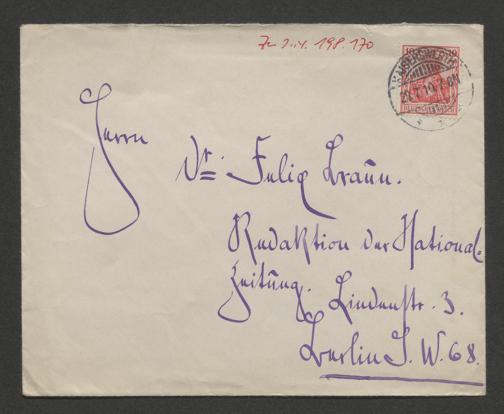 Z- I.N. 198.170
10 10
KAISERSWERTH
Herrn
Dr. Felix Braun.
Redaktion der National-
Zeitung. Lindenstr. 3.
Berlin S. W. 68.